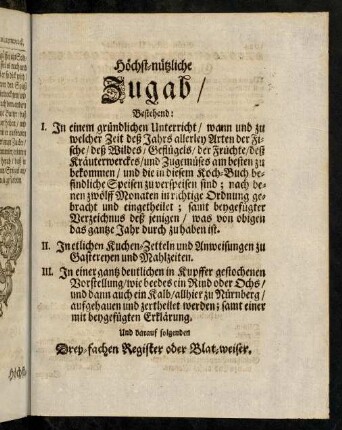 Höchst-nützliche
Zugab/
Bestehend:
I. In einem gründlichen Unterricht/ wann und zu
welcher Zeit deß Jahrs allerley Arten der Fi-
sche/ deß Wildes/ Geflügels/ der Früchte/ deß
Kräuterwerckes/ und Zugemüses am besten zu
bekommen/ und die in diesem Koch-Buch be-
findliche Speisen zu verspeisen sind; nach de-
nen zwölff Monaten in richtige Ordnung ge-
bracht und eingetheilet; samt beygefügter
Verzeichnus deß jenigen/ was von obigen
das gantze Jahr durch zu haben ist.
II. In etlichen Kuchen-Zetteln und Anweisungen zu
Gastereyen und Mahlzeiten.
III. In einer gantz deutlichen in Kupffer gestochenen
Vorstellung/ wie beedes ein Rind oder Ochs/
und dann auch ein Kalb/ allhier zu Nürnberg/
aufgehauen und zertheilet werden; samt einer
mit beygefügten Erklärung.
Und darauf folgenden
Drey-fachen Register oder Blat-weiser.
Höchst-